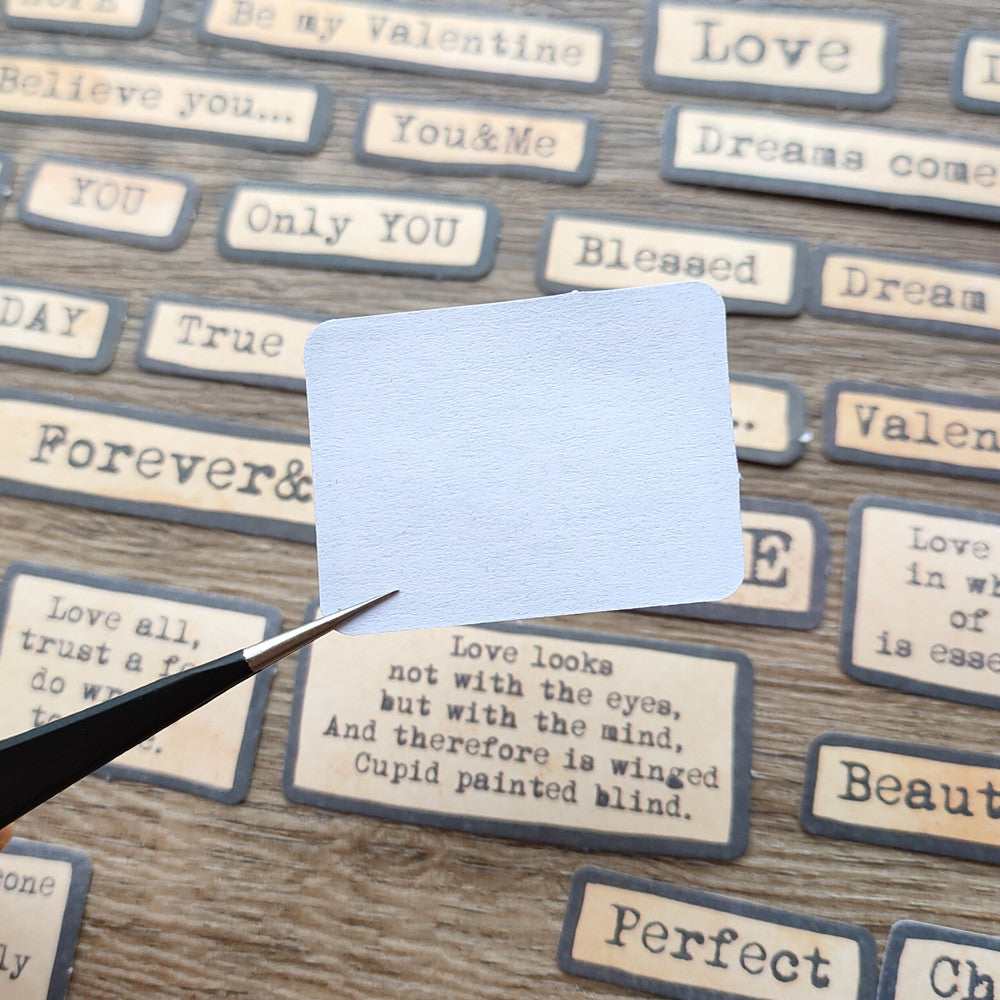 HOPE
Be my Valentine
Love
Believe you...
You&Me
Dreams come
YOU
Only YOU
Blessed
Dream
DAY
True
..
Valen
Forever&
E
Love
in wh
of
is esse
Love all,
trust a fe
do wr
to
e.
Love looks
not with the eyes,
but with the mind,
And therefore is winged
Cupid painted blind.
Beaut
one
ly
Perfect
Ch